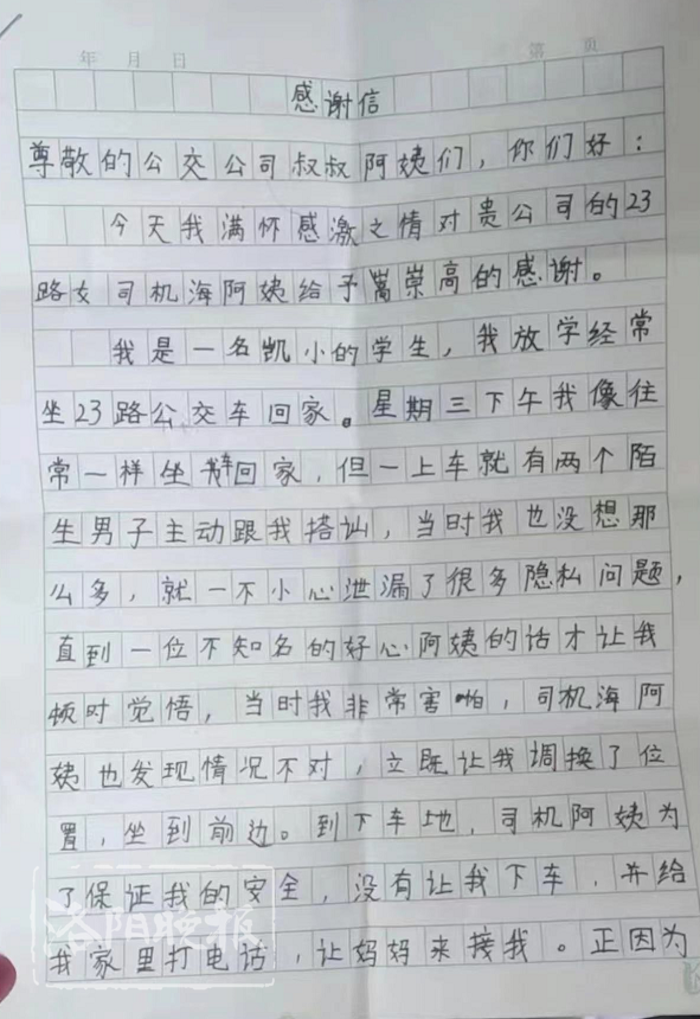 年 月 日 第 页
感谢信
尊敬的公交公司叔叔阿姨们，你们好：
今天我满怀感激之情对贵公司的23
路女司机海阿姨给予嵩崇高的感谢。
我是一名凯小的学生，我放学经常
坐23路公交车回家。星期三下午我像往
常一样坐车回家，但一上车就有两个陌
生男子主动跟我搭讪，当时我也没想那
么多，就一不小心泄漏了很多隐私问题，
直到一位不知名的好心阿姨的话才让我
顿时觉悟，当时我非常害怕，司机海阿
姨也发现情况不对，立既让我调换了位
置，坐到前边。到下车地，司机阿姨为
了保证我的安全，没有让我下车，并给
我家里打电话，让妈妈来接我。正因为
洛阳晚报